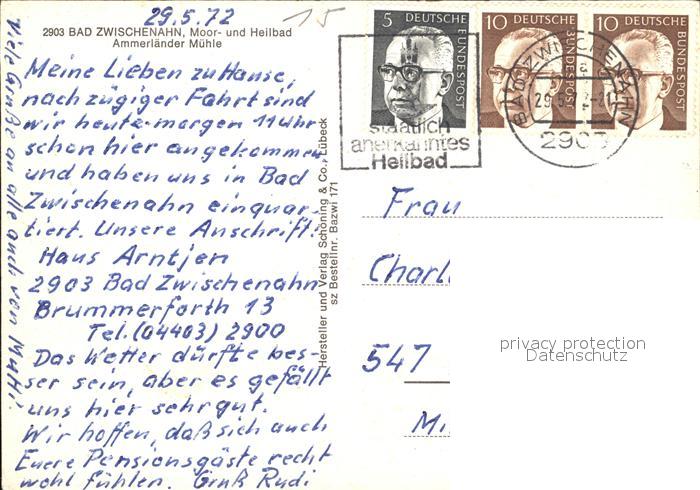 29.5.72
15
2903 BAD ZWISCHENAHN, Moor- und Heilbad
Ammerländer Mühle
Meine Lieben zu Hause,
nach zügiger Fahrt sind
wir heute morgen 11 Uhr
schon hier angekommen
und haben uns in Bad
Zwischenahn einquar-
tiert. Unsere Anschrift:
Haus Arntjen
2903 Bad Zwischenahn
Brummerforth 13
Tel. (04403) 2900
Das Wetter dürfte bes-
ser sein, aber es gefällt
uns hier sehr gut.
Wir hoffen, daß sich auch
Euere Pensionsgäste recht
wohl fühlen. Gruß Rudi
Viele Grüße an alle auch von Mutti.
Hersteller und Verlag Schöning & Co., Lübeck
sz Bestellnr. Bazwi 171
5 DEUTSCHE BUNDESPOST
10 DEUTSCHE BUNDESPOST
10 DEUTSCHE BUNDESPOST
staatlich
anerkanntes
Heilbad
BAD ZWISCHENAHN
2903
Frau
Charl
547
privacy protection
Datenschutz